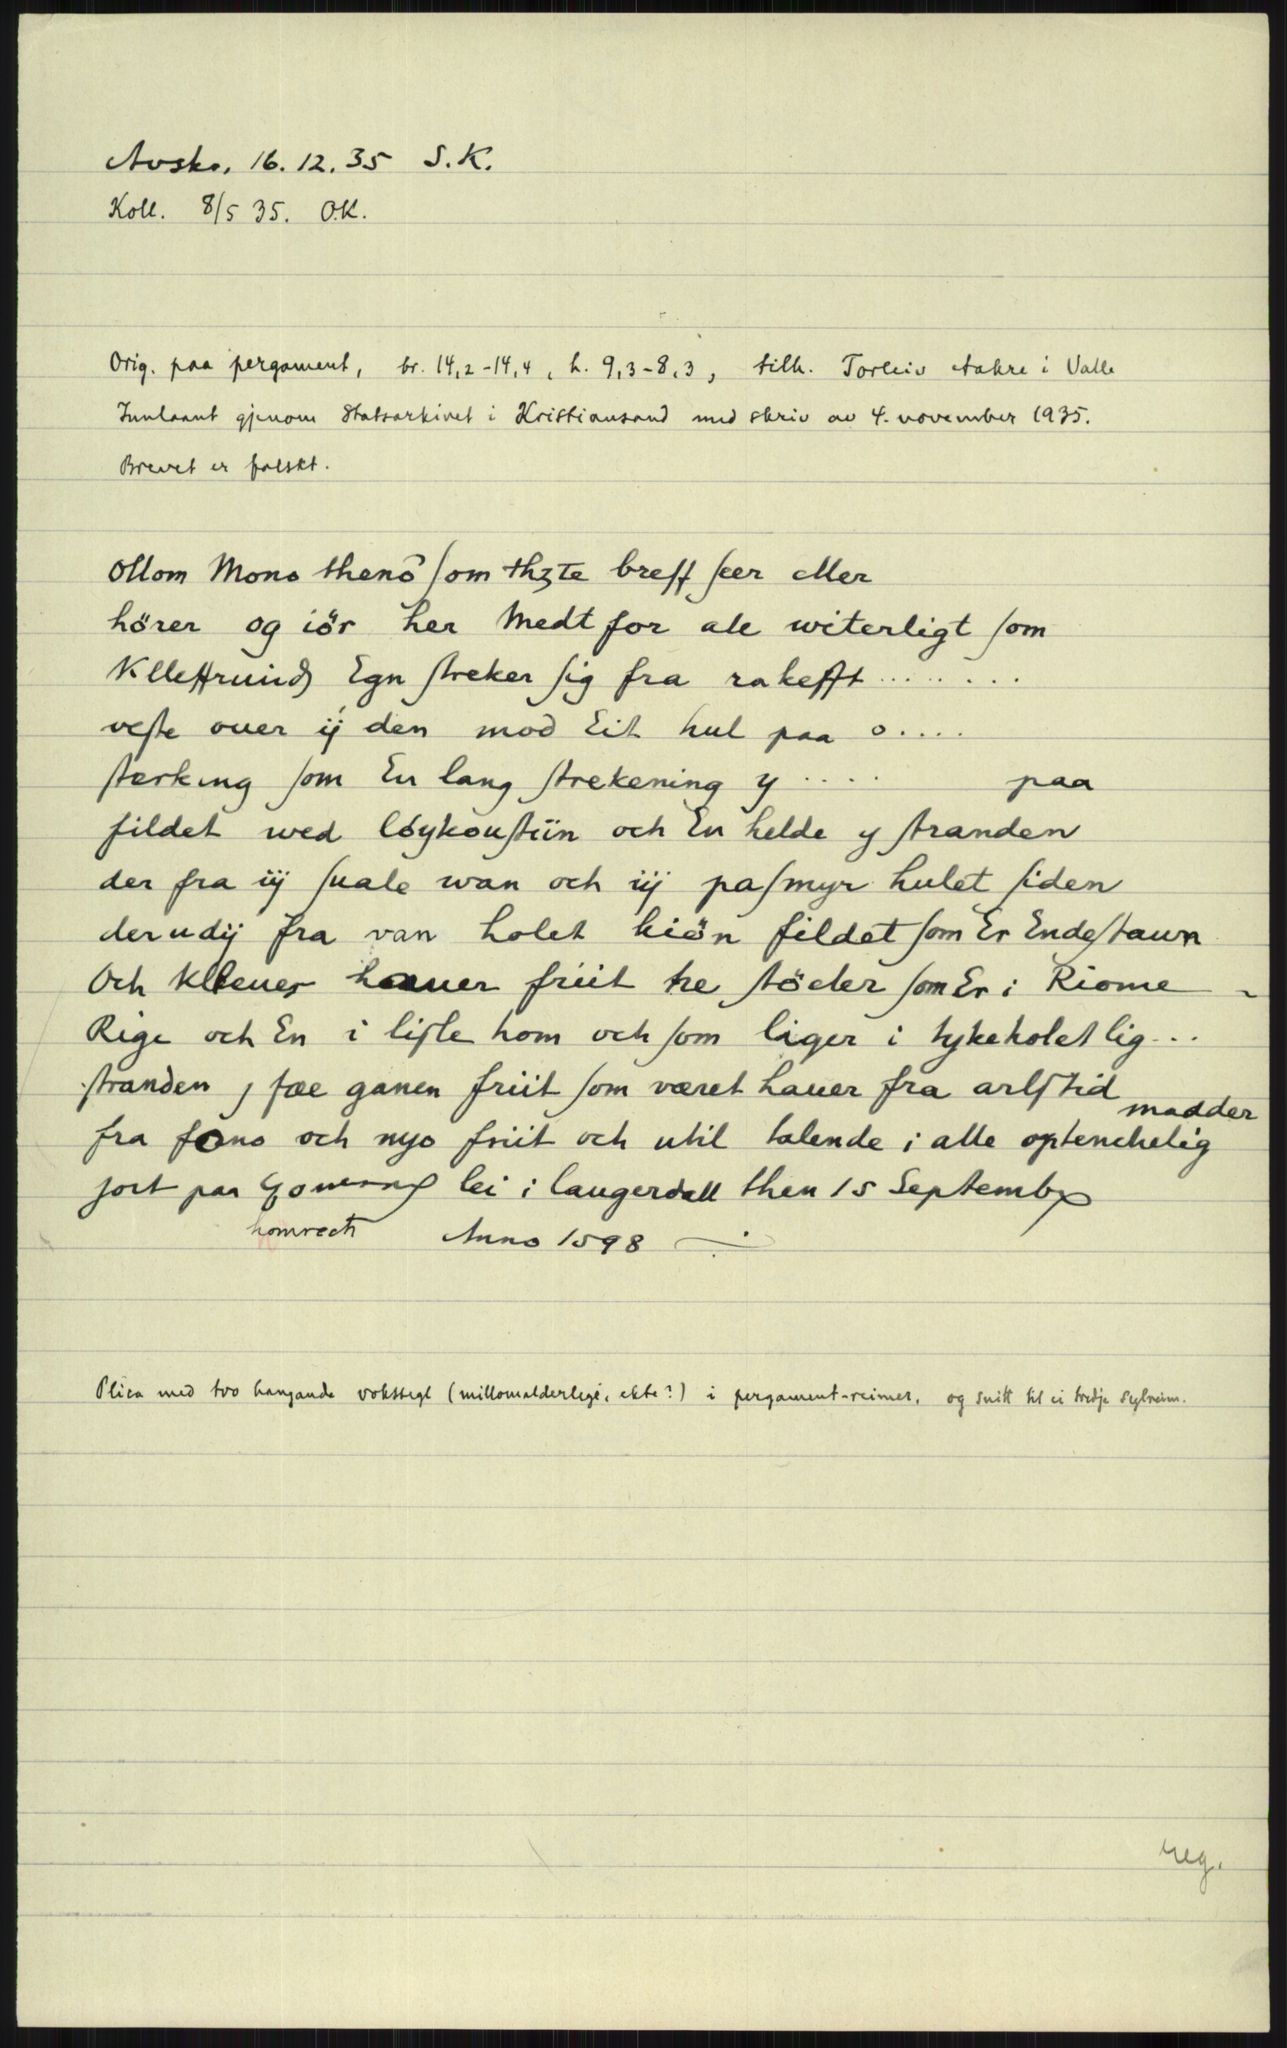 Avskr. 16.12.35 S.K.
Koll. 8/5 35. O.K.
Orig. paa pergament, br. 14,2-14,4, h. 9,3-8,3, tilh. Torleiv Aakre i Valle
Innlaant gjenom Statsarkivet i Kristiansand med skriv av 4. november 1935.
Brevet er falskt.
Ollom Mono thenö ſom thꝫte breff ſeer eller
hörer og iör her Medt for ale witerligt ſom
Egn ſtreker ſig fra rakefft ........
veſte ouer ij den mod Eit hul paa o....
ſterking ſom En lang ſtrekening y .... paa
fildet wed löykouſtiin och En helde y ſtranden
der fra iij ſuale wan och iij paſmyr hulet ſiden
derudij fra van holet kiön fildet ſom Er Endeſtawn
Och Kleuer hauer friit tre ſtöder ſom Er i Riome -
Rige och En i liſle hom och ſom liger i tykeholet lig...
ſtranden ſ fæe ganen friit ſom været hauer fra arlſtid
madder
fra fono och nyo friit och util talende i alle optenchelig
jort paa lei i laugerdall then 15 Septembꝫ
homrech Anno 1598
Plica med tvo hangande vokssegl (millomalderlege, ekte?) i pergament-reimer, og snitt til ei tredje seglreim.
reg.